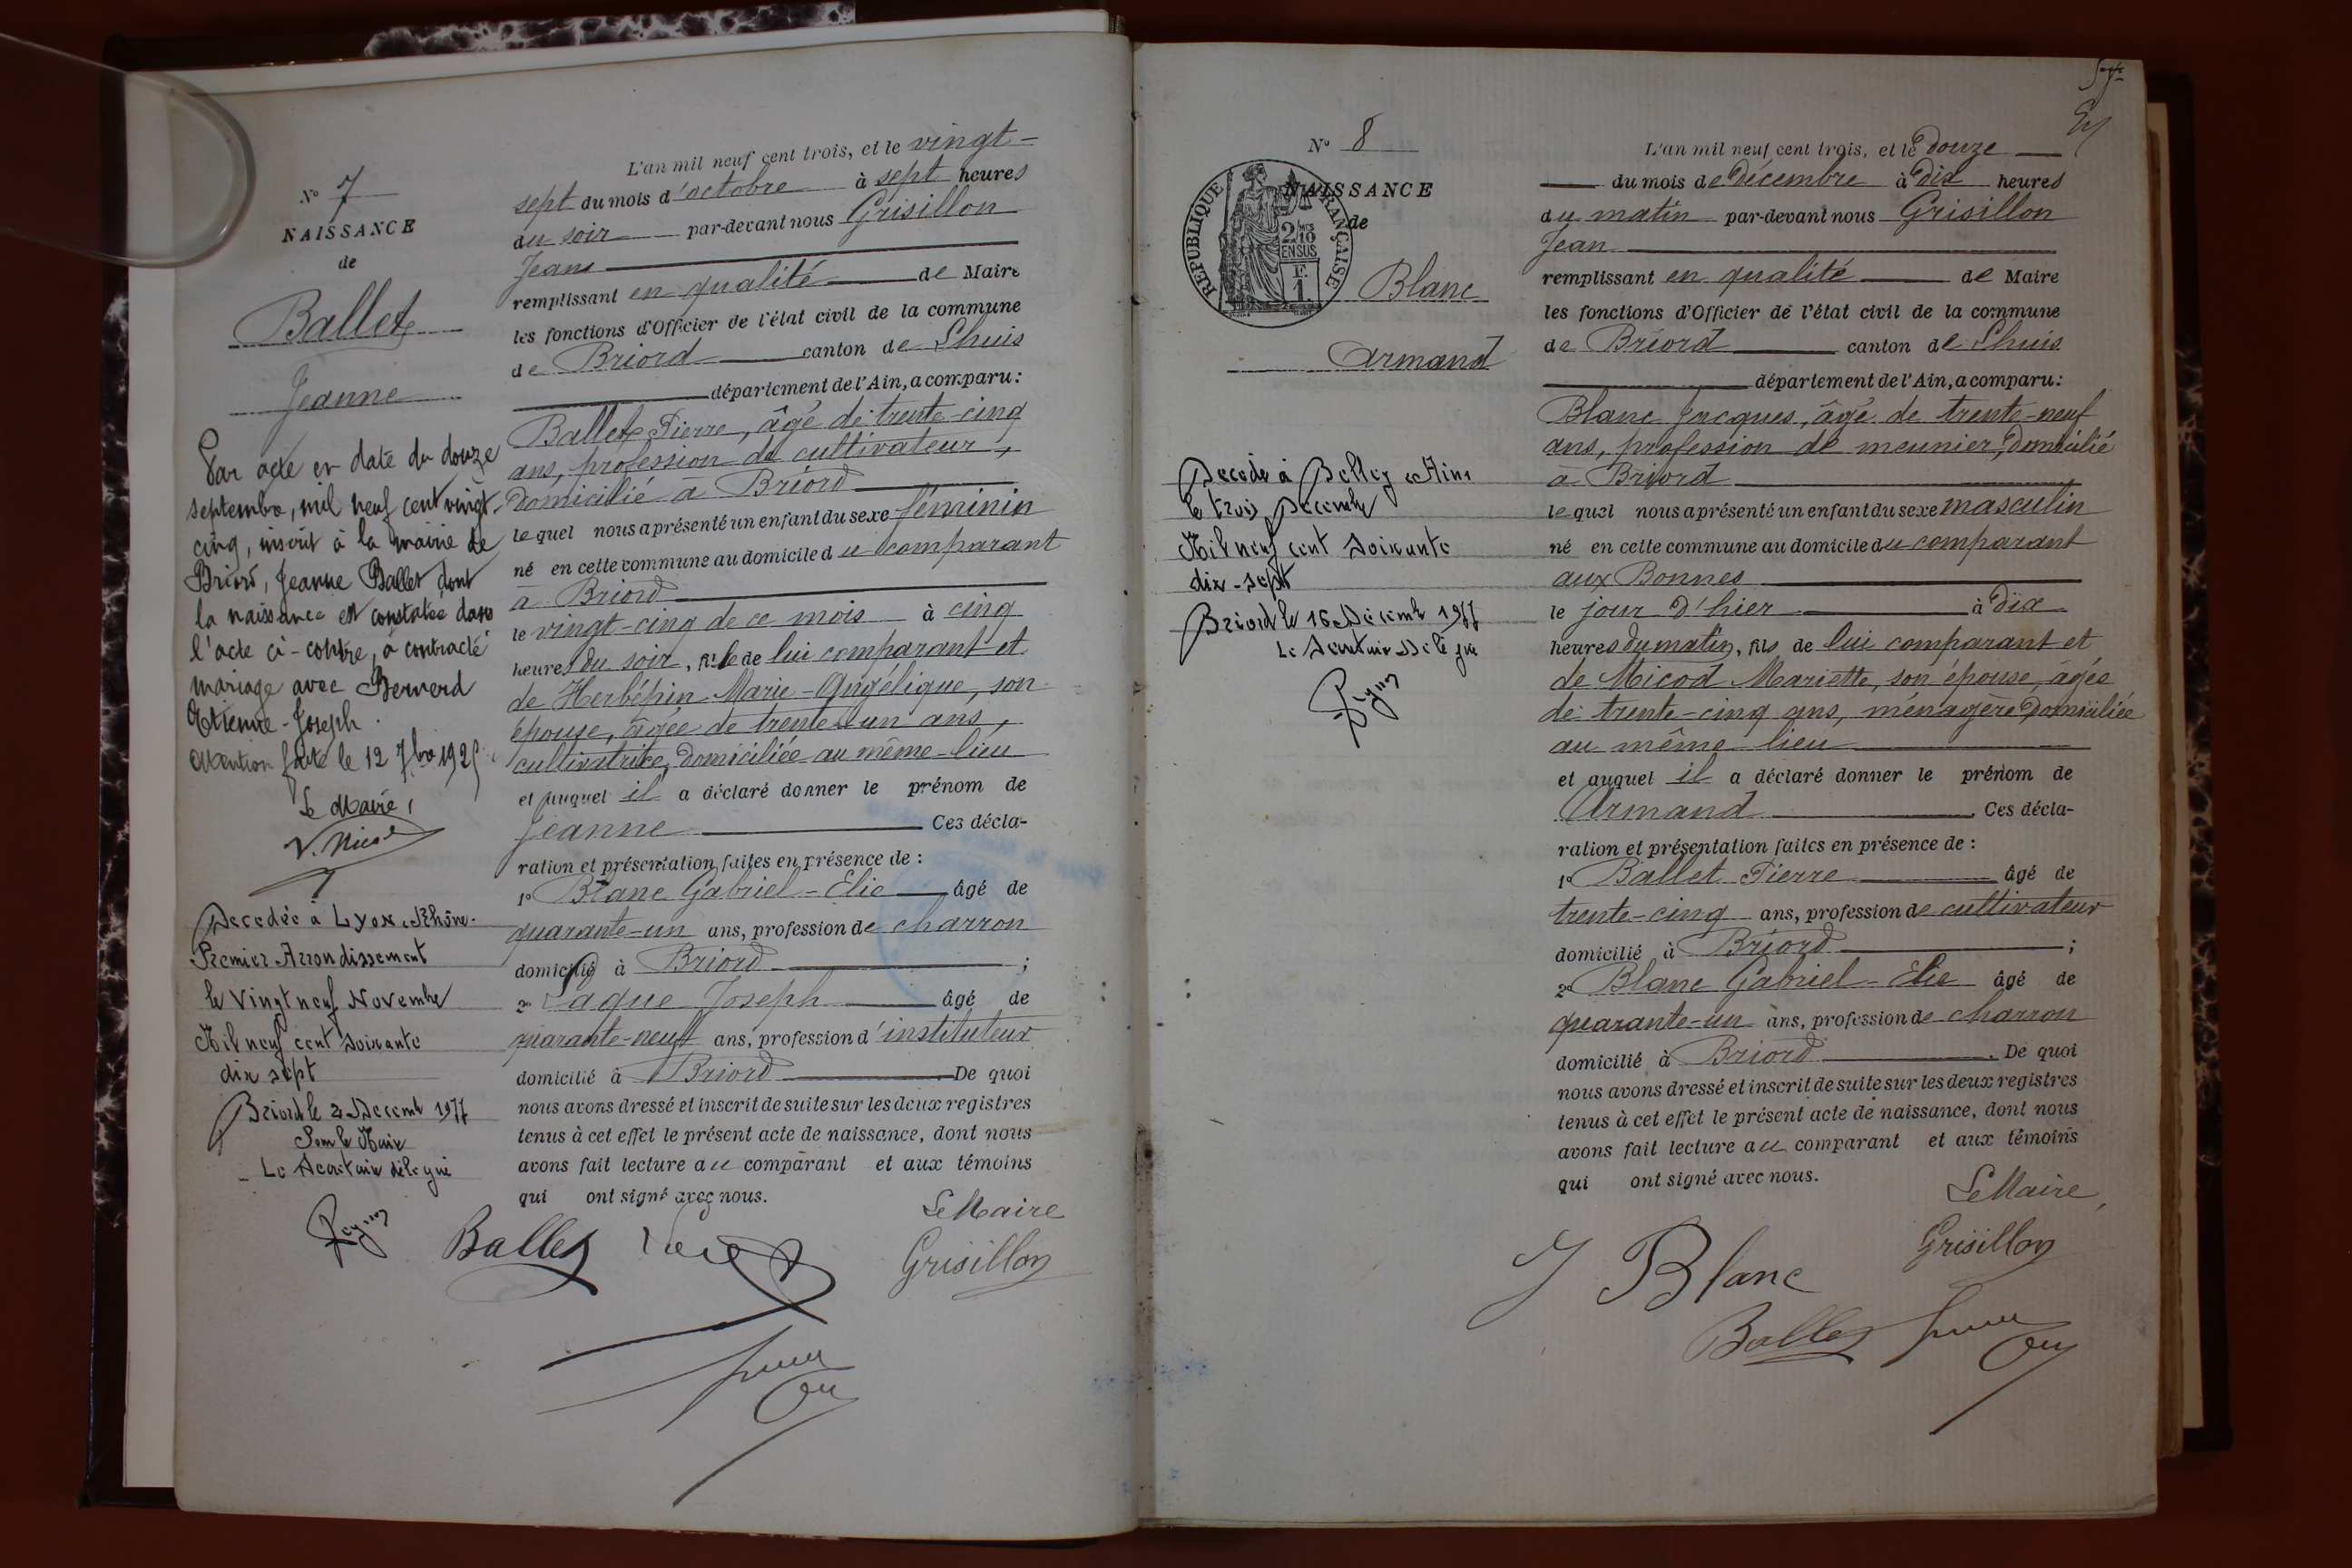 N° 7
NAISSANCE
de
Ballet
Jeanne
Par acte en date du douze
septembre, mil neuf cent vingt-
cinq, inscrit à la mairie de
Briord, Jeanne Ballet dont
la naissance est constatée dans
l'acte ci-contre, a contracté
mariage avec Bernerd
Etienne-Joseph.
Mention faite le 12 7bre 1925
Le Maire,
Decedée à Lyon Rhône.
Premier Arrondissement
le Vingt neuf Novembre
Mil neuf cent soixante
dix sept
Briord le 2 Decemb 1977
Pour le Maire
Le Secretaire délégué
L'an mil neuf cent trois, et le vingt-
sept du mois d'octobre à sept heures
du soir par-devant nous Grisillon
Jean
remplissant en qualité de Maire
les fonctions d'Officier de l'état civil de la commune
de Briord canton de Lhuis
département de l'Ain, a comparu:
Ballet Pierre, âgé de trente-cinq
ans, profession de cultivateur,
domicilié à Briord
lequel nous a présenté un enfant du sexe féminin
né en cette commune au domicile du comparant
à Briord
le vingt-cinq de ce mois à cinq
heures du soir, fille de lui comparant et
de Herbépin Marie-Angélique, son
épouse, âgée de trente-un ans,
cultivatrice, domiciliée au même lieu
et auquel il a déclaré donner le prénom de
Jeanne Ces décla-
ration et présentation faites en présence de :
1° Blanc Gabriel-Elie âgé de
quarante-un ans, profession de charron
domicilié à Briord ;
2° Laque Joseph âgé de
quarante-neuf ans, profession d'instituteur
domicilié à Briord De quoi
nous avons dressé et inscrit de suite sur les deux registres
tenus à cet effet le présent acte de naissance, dont nous
avons fait lecture au comparant et aux témoins
qui ont signé avec nous.
Le Maire
Ballet
Grisillon
N° 8
NAISSANCE
de
REPUBLIQUE FRANÇAISE
2/10
EN SUS
F.
1.
Blanc
Armand
Decede à Belley Ain
le trois Decembre
Mil neuf cent soixante
dix-sept
Briord le 16 Decemb 1977
Le Secretaire Délégué
L'an mil neuf cent trois, et le douze
du mois de Décembre à dix heures
du matin par-devant nous Grisillon
Jean
remplissant en qualité de Maire
les fonctions d'Officier de l'état civil de la commune
de Briord canton de Lhuis
département de l'Ain, a comparu:
Blanc Jacques, âgé de trente-neuf
ans, profession de meunier, domicilié
à Briord
lequel nous a présenté un enfant du sexe masculin
né en cette commune au domicile du comparant
aux Bonnes
le jour d'hier à dix
heures du matin, fils de lui comparant et
de Micod Mariette, son épouse, âgée
de trente-cinq ans, ménagère domiciliée
au même lieu
et auquel il a déclaré donner le prénom de
Armand Ces décla-
ration et présentation faites en présence de :
1° Ballet Pierre âgé de
trente-cinq ans, profession de cultivateur
domicilié à Briord ;
2° Blanc Gabriel-Elie âgé de
quarante-un ans, profession de charron
domicilié à Briord De quoi
nous avons dressé et inscrit de suite sur les deux registres
tenus à cet effet le présent acte de naissance, dont nous
avons fait lecture au comparant et aux témoins
qui ont signé avec nous.
Le Maire,
Grisillon
J Blanc
Ballet